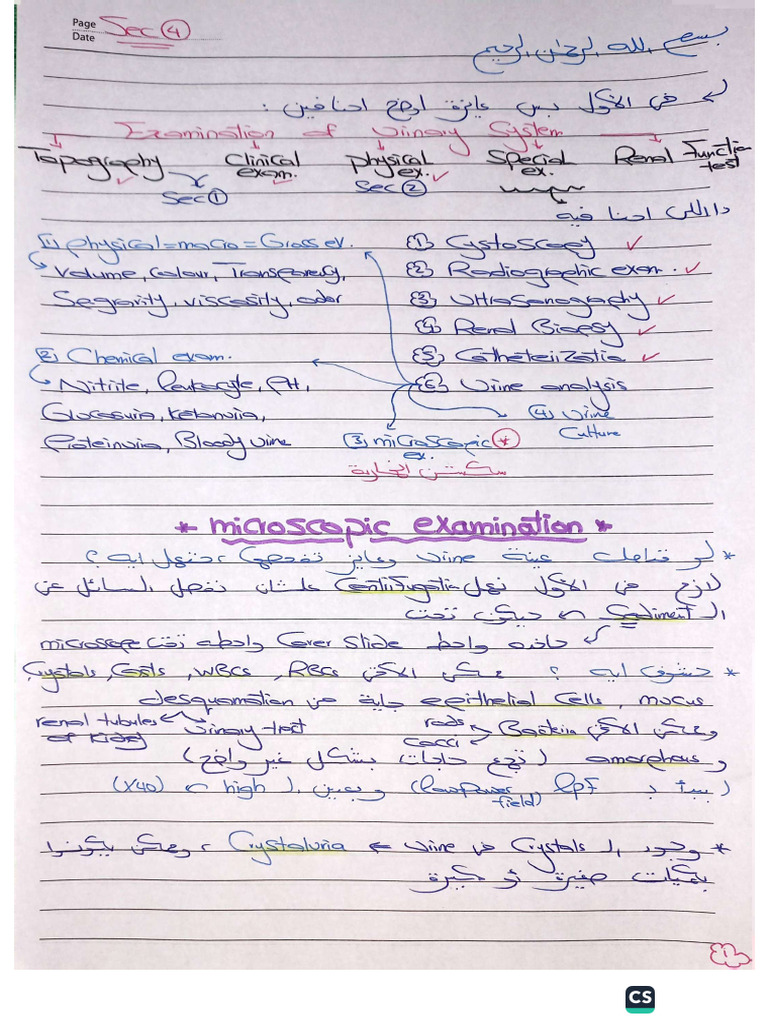 Page Sec ④
Date
بسم الله الرحمن الرحيم
في الأول بس عايزة اوضح احنا فين :
Examination of Urinary System
Topography Clinical exam. Physical ex. Special ex. Renal Function test
Sec ① Sec ②
دا اللي احنا فيه
(1) physical = macro = Gross ex.
Volume, Colour, Transparency,
Segarity, viscosity, odor
(2) Chemical exam.
Nitrite, Leukocyte, PH,
Glucosuria, Ketonuria,
Proteinuria, Bloody urine
(1) Cystoscopy
(2) Radiographic exam.
(3) Ultrasonography
(4) Renal Biopsy
(5) Catheterization
(6) Urine analysis
(3) microscopic ex. *
(4) Urine Culture
* microscopic examination *
* لو عينة urine وعايز تفحصها، هتعمل ايه ؟
لازم في الأول نعمل Centrifugation علشان نفصل السائل عن
الـ Sediment تحت
هتاخده واحط Cover Slide واحطه تحت microscope
* هتشوف ايه ؟ ممكن ألاقي RBCs, WBCs, Casts, Crystals,
mucus, epithelial cells جاية من desquamation
urinary tract renal tubules of Kidney
وممكن ألاقي Bacteria rods cocci
و amorphous (تجمع حاجات بشكل غير واضح)
نبدأ بـ lpf (low power field) وبعدين الـ high (X40)
* وجود الـ Crystals في urine ← Crystaluria، وممكن يكونوا
بكميات صغيرة أو كبيرة
1
CS